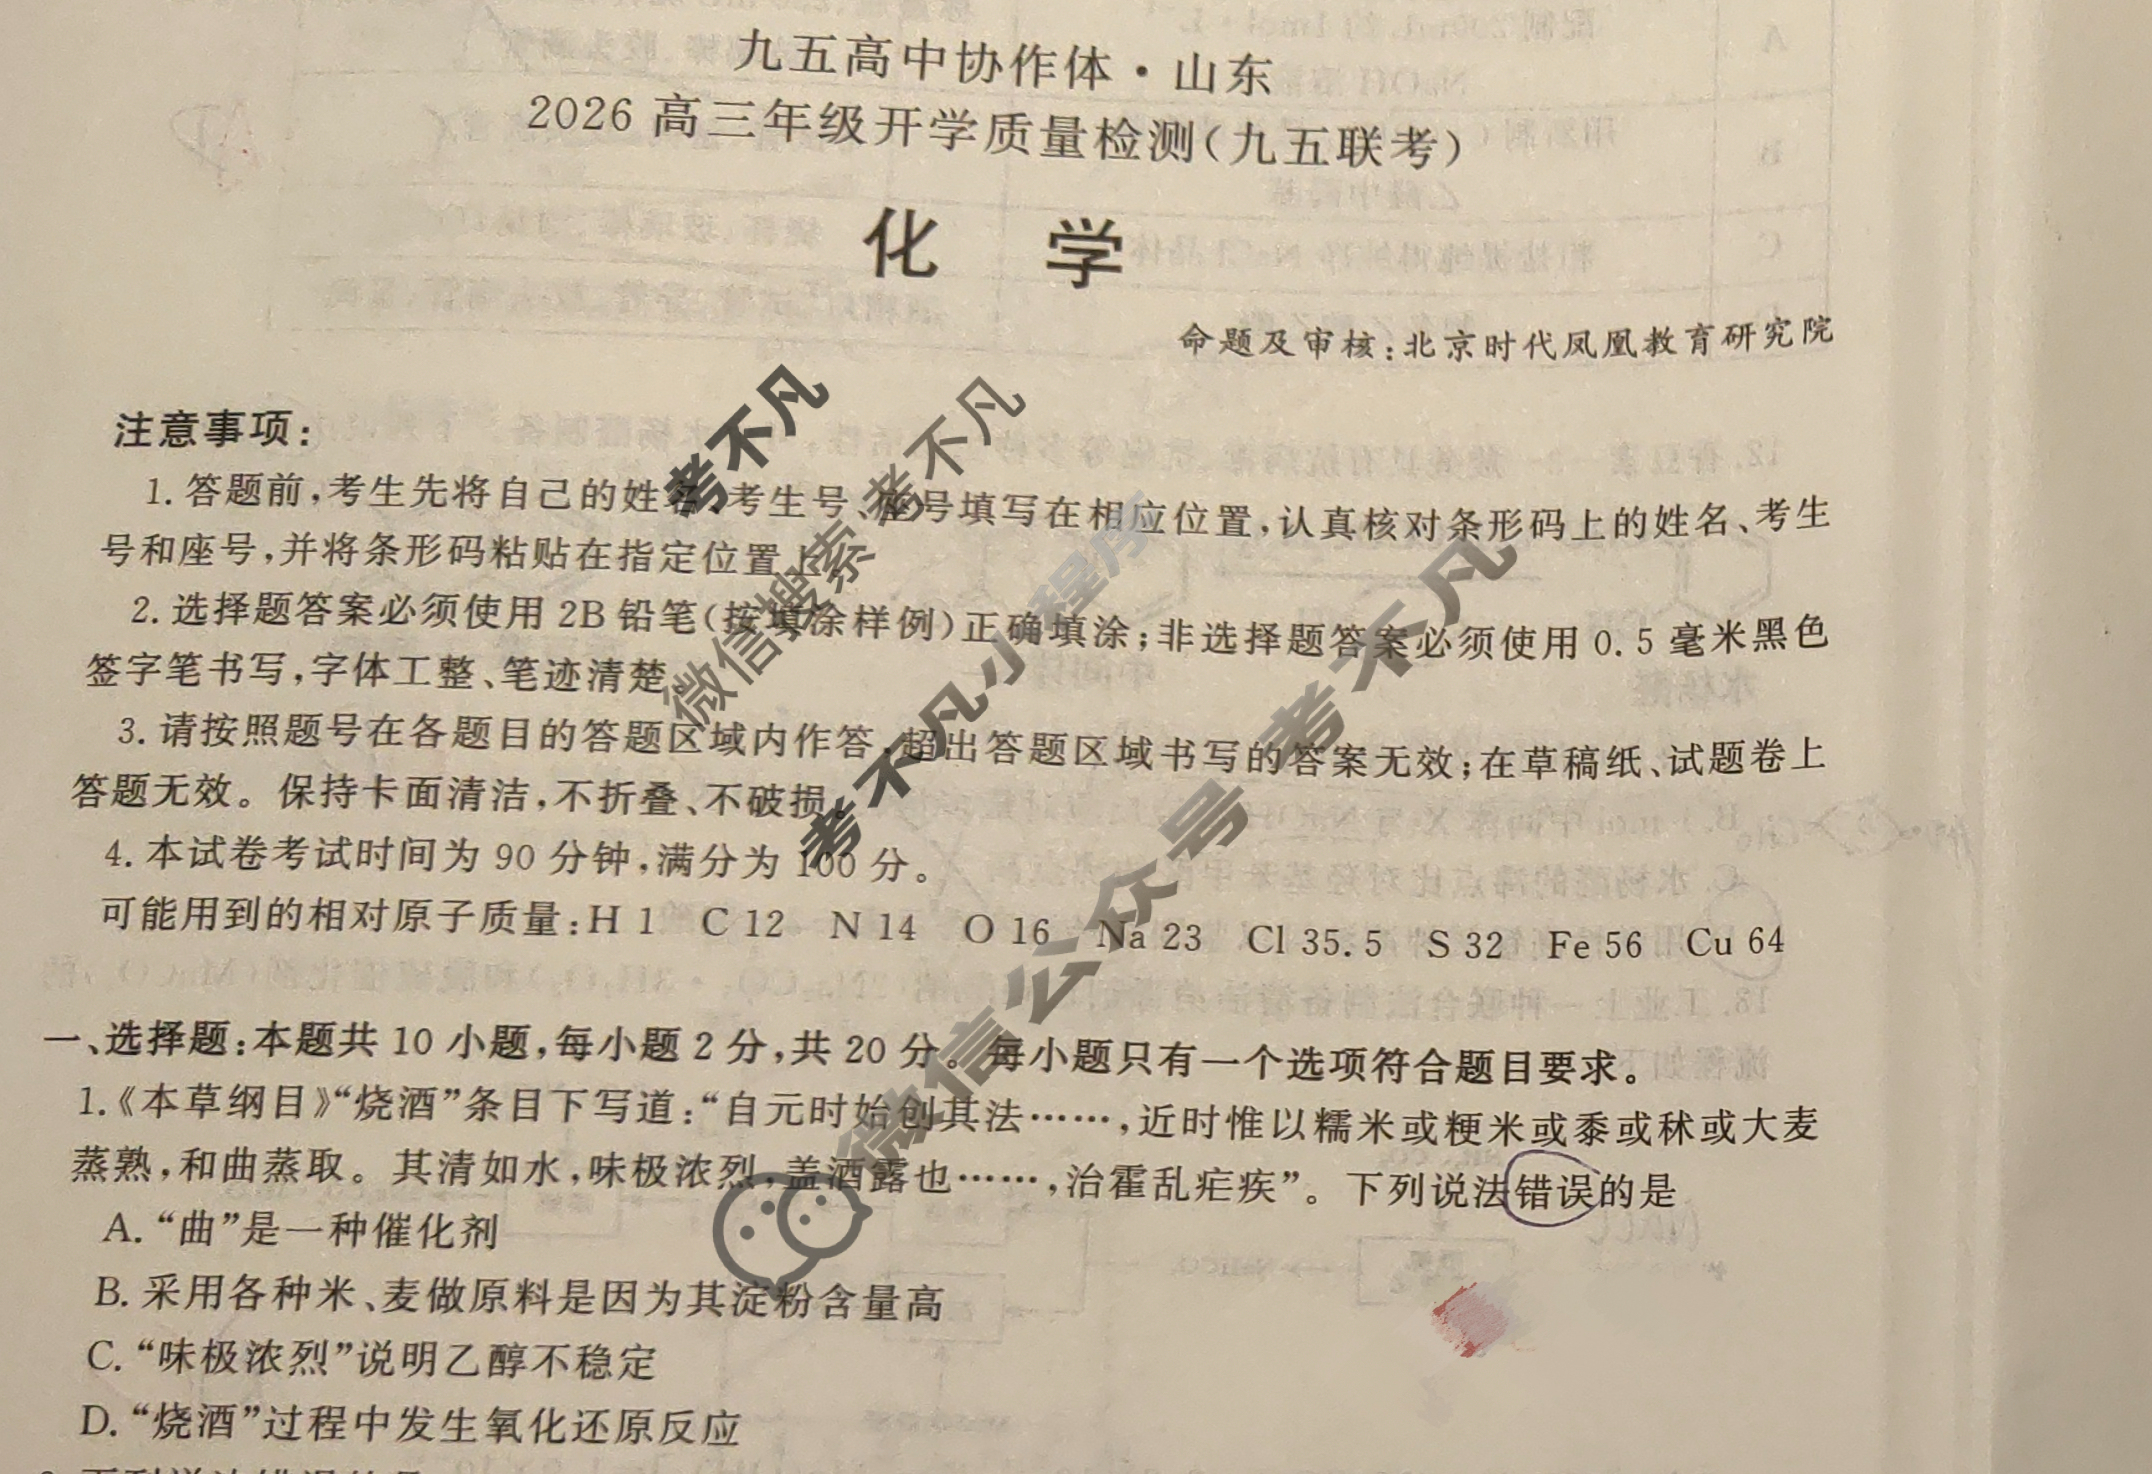 九五高中协作体·山东
2026高三年级开学质量检测(九五联考)
化 学
命题及审核:北京时代凤凰教育研究院
注意事项:
1. 答题前,考生先将自己的姓名、考生号、座号填写在相应位置,认真核对条形码上的姓名、考生
号和座号,并将条形码粘贴在指定位置上。
2. 选择题答案必须使用 2B 铅笔(按填涂样例)正确填涂;非选择题答案必须使用 0.5 毫米黑色
签字笔书写,字体工整、笔迹清楚。
3. 请按照题号在各题目的答题区域内作答,超出答题区域书写的答案无效;在草稿纸、试题卷上
答题无效。保持卡面清洁,不折叠、不破损。
4. 本试卷考试时间为 90 分钟,满分为 100 分。
可能用到的相对原子质量:H 1 C 12 N 14 O 16 Na 23 Cl 35.5 S 32 Fe 56 Cu 64
一、选择题:本题共 10 小题,每小题 2 分,共 20 分。每小题只有一个选项符合题目要求。
1.《本草纲目》“烧酒”条目下写道:“自元时始创其法……,近时惟以糯米或粳米或黍或秫或大麦
蒸熟,和曲蒸取。其清如水,味极浓烈,盖酒露也……,治霍乱疟疾”。下列说法错误的是
A. “曲”是一种催化剂
B. 采用各种米、麦做原料是因为其淀粉含量高
C. “味极浓烈”说明乙醇不稳定
D. “烧酒”过程中发生氧化还原反应
考不凡
微信搜索 考不凡
考不凡小程序
微信公众号 考不凡